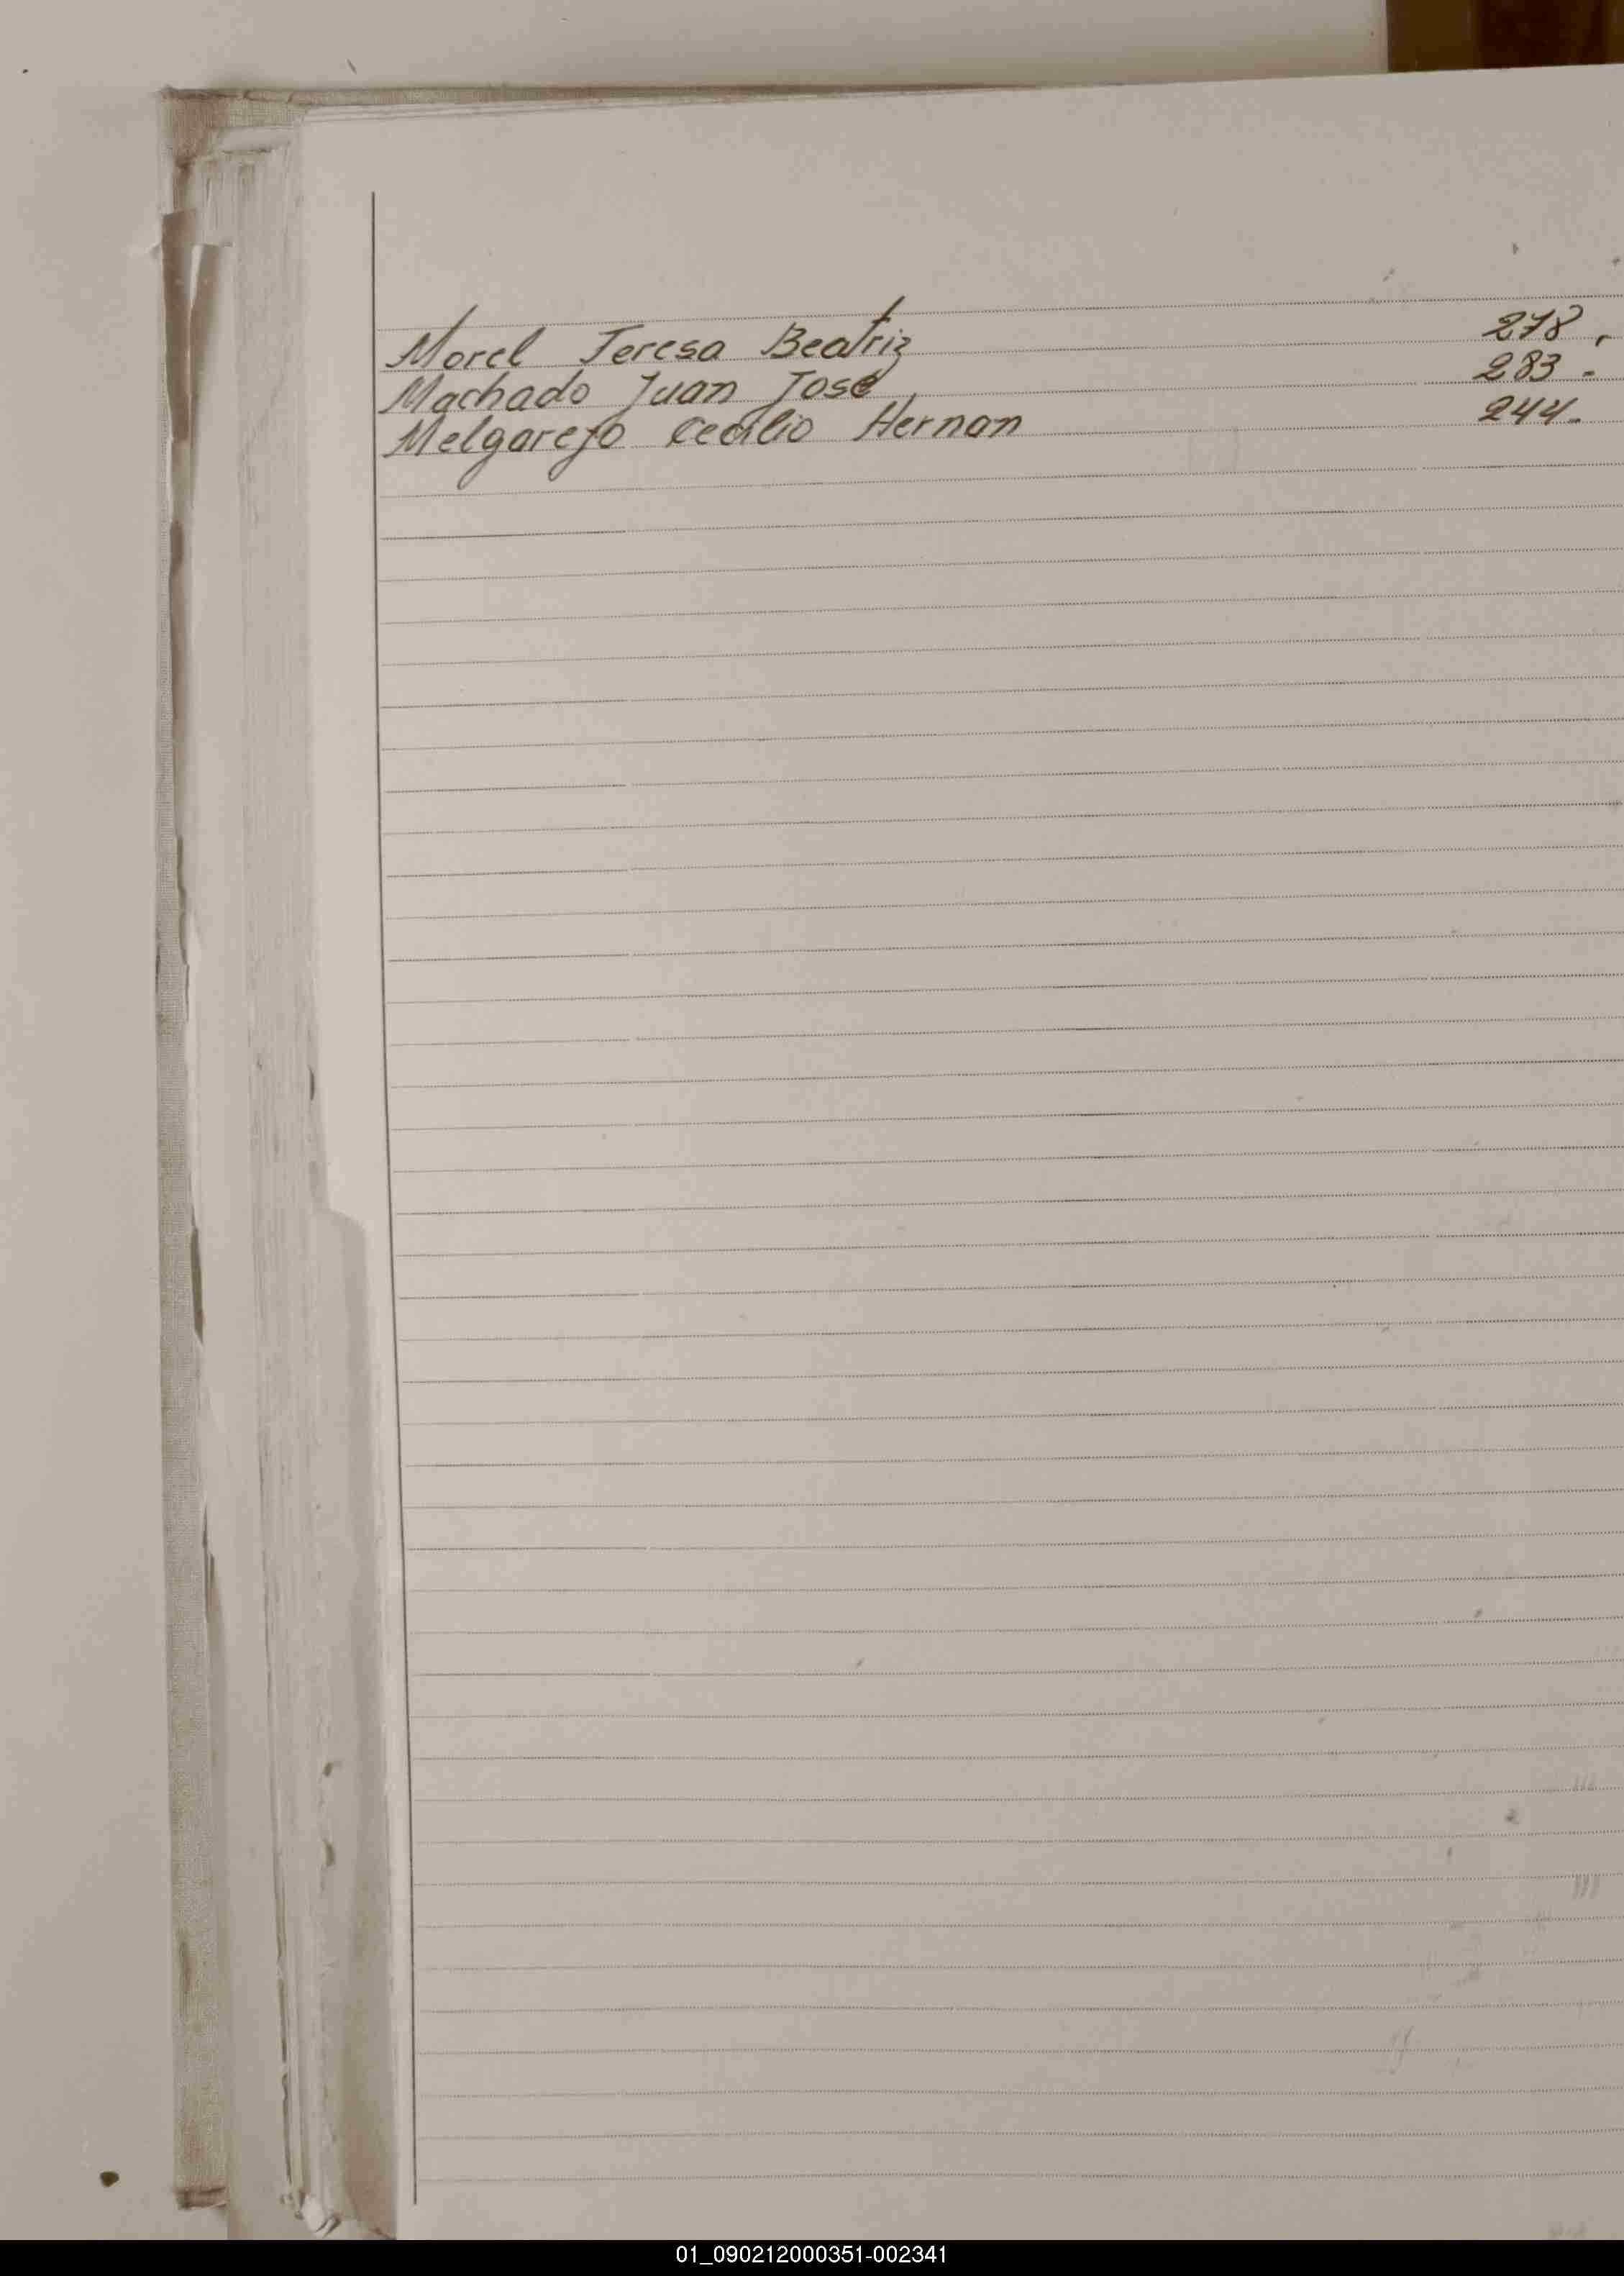 Morel Teresa Beatriz 278.
Machado Juan José 283.
Melgarejo Cecilio Hernan 244.
01_090212000351-002341